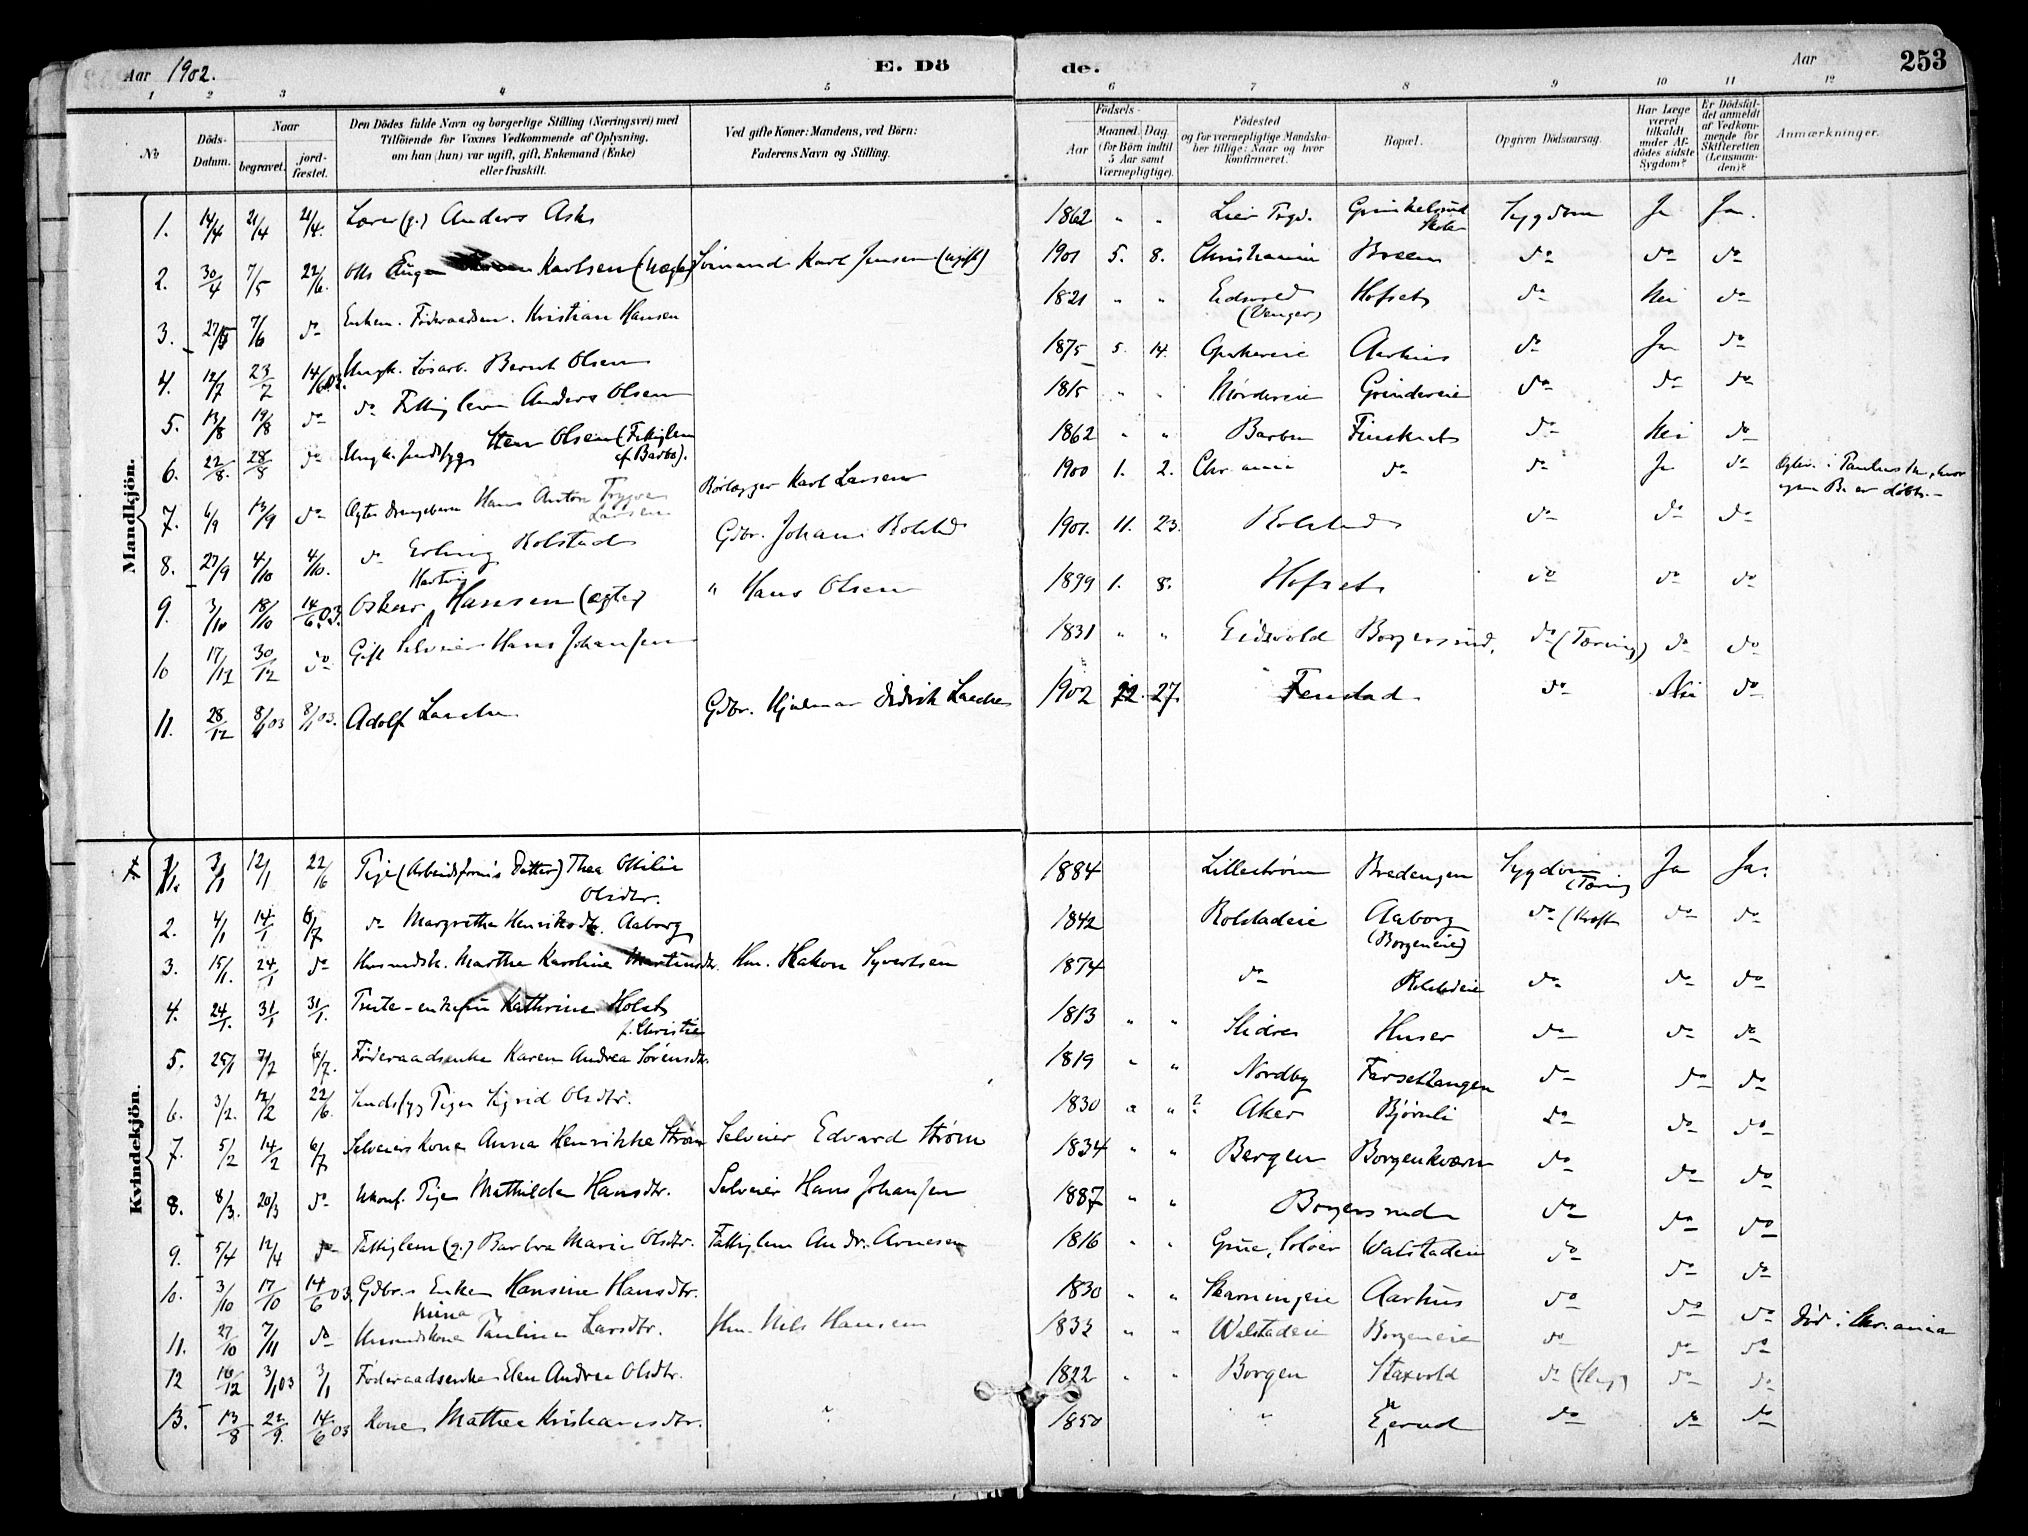 Aar 1902. E. Dö de. Aar 253
1 2 3 4 5 6 7 8 9 10 11 12
No Döds-Datum. Naar begravet. jord-fæstet. Den Dödes fulde Navn og borgerlige Stilling (Næringsvei) med Tilföiende for Voxnes Vedkommende af Oplysning, om han (hun) var ugift, gift, Enkemand (Enke) eller fraskilt. Ved gifte Koner: Mandens, ved Börn: Faderens Navn og Stilling. Aar Födsels- Maaned. Dag. (for Börn indtil 5 Aar samt Værnepligtige). Födested og for værnepligtige Mandskaber tillige: Naar og hvor konfirmeret. Bopæl. Opgiven Dödsaarsag. Har Læge været tilkaldt under Afdödes sidste Sygdom? Er Dödsfaldet anmeldt af Vedkommende for Skifteretten (Lensmanden)? Anmærkninger.
Mandkjön.
1. 14/4 21/4 21/4. Lærer (g.) Anders Ask 1862 " " Lier Prgd. Grinkelsrud Skole Sygdom Ja Ja.
2. 30/4 7/5 22/6. Otto Eugen Karlsen (uægte) Sömand Karl Jensen (ugift) 1901 5. 8. Christiania Breen do do do
3. 27/5 7/6 do Enkem. Föderaadsm. Kristian Hansen 1821 " " Eidsvold (Venger) Hofset do Nei do
4. 12/7 23/7 14/6 03. Ungk. Løsarb. Bernt Olsen 1875 5. 14. Aarhus do Ja do
5. 13/8 19/8 do do Fattiglem Anders Olsen 1815 " " Nordereie Grindereie do do do
6. 22/8. 28/8 do Ungk. sindssyg Sten Olsen (Fattiglem af Barbo). 1862 " " Barbu Finskut do Nei do
7. 6/9 13/9 do Ægte Drengebarn Hans Anton Trygve Larsen Rörlægger Karl Larsen 1900 1. 2. Chr.ania do do Ja do
8. 27/9 4/10 4/10. do Erling Rolstad Gdbr. Johan Rolstad 1901. 11. 23. Rolstad do do do
9. 3/10 18/10 14/6 03. Oskar Hartvig Hansen (ægte) " Hans Olsen 1899 1. 8. Hofset do do do
10 17/12 30/12 do Gift Selveier Hans Johansen 1831 " " Eidsvold Borgersrud. do (Tæring) do do
11. 28/12 8/1 03 8/1 03. Adolf Laache Gdbr. Hjalmar Didrik Laache 1902 12. 27. Fenstad do Nei do
Kvindekjön.
1. 3/1 12/1 22/6 Pige (Arbeidsforms Datter) Thea Otilie Olsdtr. 1884 Lillestrøm Bredengen Sygdom (Tæring Ja Ja.
2. 4/1 14/1 6/7 do Margrethe Henriksdtr. Aaborg 1842 Rolstadeie Aaborg (Borgeneie) do (Kræft do do
3. 15/1. 24/1 do Husmdsk. Marthe Karoline Martinsdtr. Hm. Hakon Syvertsen 1874 do Rolstadeie do do do
4. 24/1. 31/1 31/1. Kathrine Holst f. Christie 1813 " " Slidre Huser do do do
5. 25/1 7/2 6/7. Föderaadsenke Karen Andrea Sørensdtr. 1819 " " Nordby Farsettangen do do do
6. 3/2. 12/2 22/6. Sindssyg Pige Sigrid Olsdtr. 1830 " " ? Aker Bjørnli do do do
7. 5/2 14/2 6/7 Selveiers Kone Anna Henrikke Strøm Selveier Edvard Strøm 1834 " " Bergen Borgenkværn do do do
8. 8/3. 20/3 do Ukonf. Pige Mathilde Hansdtr. Selveier Hans Johansen 1887 " " Borgersrud do do do
9. 5/4 12/4 do Fattiglem (g.) Barbra Marie Olsdtr. Fattiglem Andr. Arnesen 1816 " " Grue, Solør Walstadeie do do do
10. 3/10 17/10 14/6 03. Gdbr.s Enke Hansine Hansdtr. 1830 " " Skarningeie Aarhus do do do
11. 27/10 7/11 do Husmdskone Mina Pauline Larsdtr. Hm. Nils Hansen 1832 " " Walstadeie Borgeneie do do do Död i Chr.ania
12 16/12 3/1 03 3/1 Föderaadsenke Elen Andrea Olsdtr. 1822 " " Borgen Staxvold do do do
13. 13/8 22/9. 14/6 03 Kone Mathea Kristiansdtr. " 1850 " Ejerud do do do